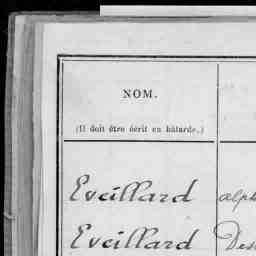 NOM.
(Il doit être écrit en bâtarde.)
Eveillard alph
Eveillard Des